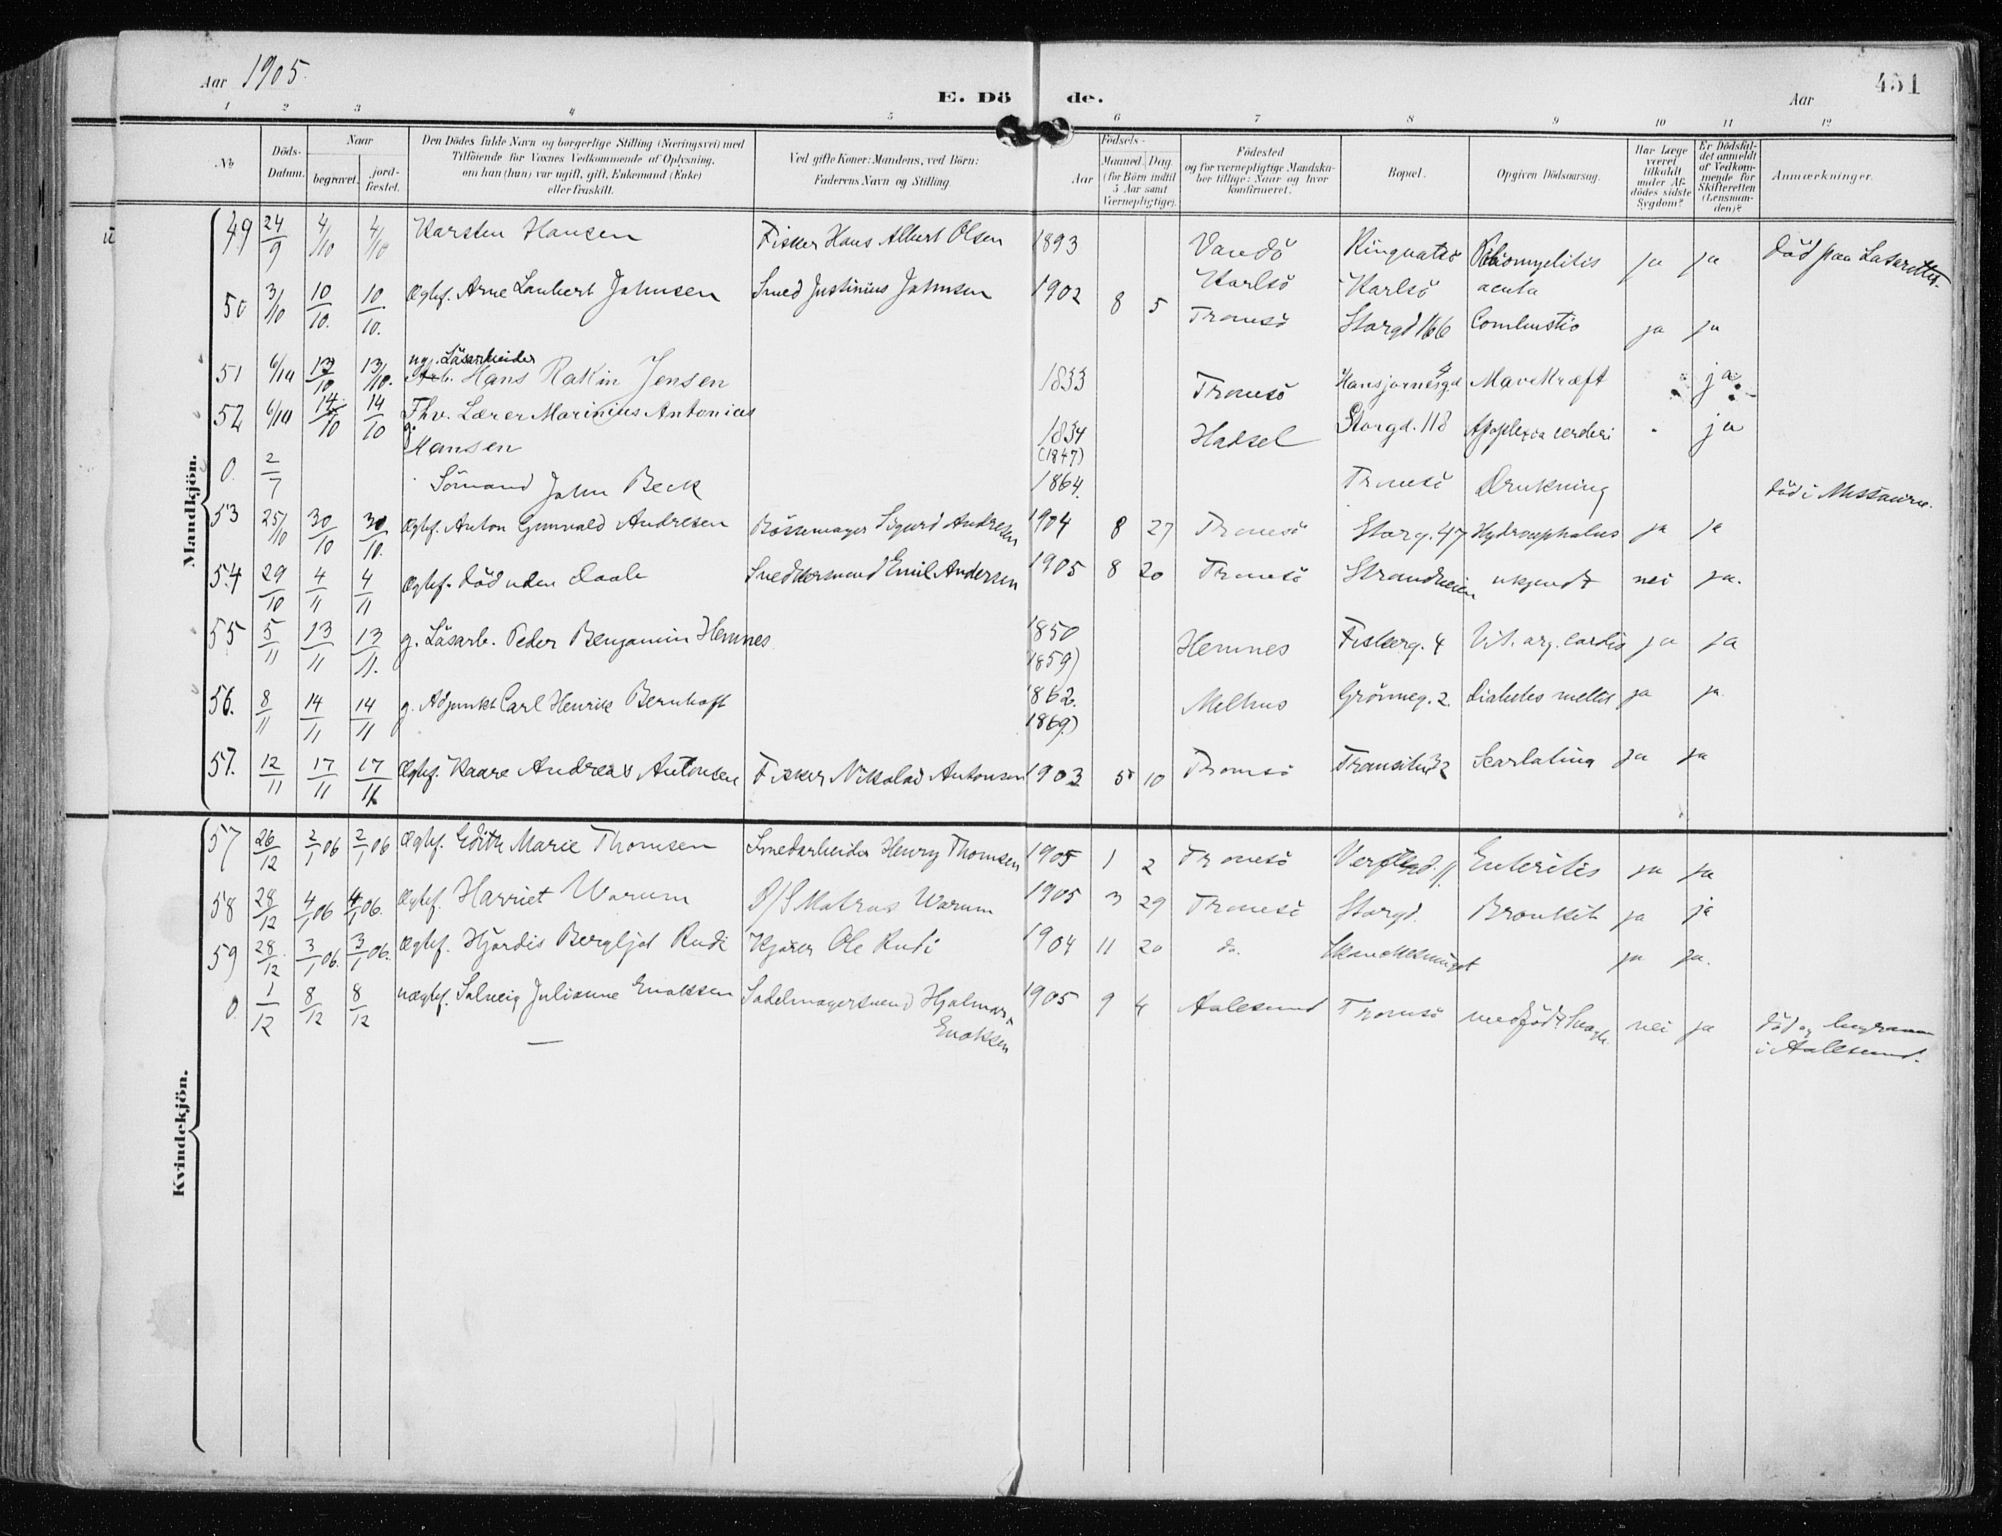 Aar 1905.
E. Döde.
Aar
451
1 2 3 4 5 6 7 8 9 10 11 12
No
Döds-Datum.
Naar
begravet.
jord-fæstet.
Den Dödes fulde Navn og borgerlige Stilling (Næringsvei) med
Tilföiende for Voxnes Vedkommende af Oplysning,
om han (hun) var ugift, gift, Enkemand (Enke)
eller fraskilt.
Ved gifte Koner: Mandens, ved Börn:
Faderens Navn og Stilling.
Aar
Födsels-
Maaned. Dag.
(for Börn indtil
5 Aar samt
Værnepligtige).
Födested
og for værnepligtige Mandska-
ber tillige: Naar og hvor
konfirmeret.
Bopæl.
Opgiven Dödsaarsag.
Har Læge
været
tilkaldt
under Af-
dödes sidste
Sygdom?
Er Dödsfal-
det anmeldt
af Vedkom-
mende for
Skifteretten
(Lensman-
den)?
Anmærkninger.
Mandkjön.
49 24/9 4/10 4/10 Karsten Hansen Fisker Hans Albert Olsen 1893 Vandö Karlsö Ringvatsö Karlsö Poliomyelitis acuta ja ja Död paa Lasarettet.
50 3/10 10/10. 10/10. Ægtef. Arne Lambert Johnsen Smed Justinius Johnsen 1902 8 5 Tromsö Storgd 166 Combustio ja ja
51 6/10 13/10 13/10. ug. Lösarbeider Hans Rakin Jensen 1833 Tromsö Hansjornesgd Mavekræft ja
52 6/10 14/10 14/10 Fhv. Lærer Marinius Antonius
g. Hansen 1834 (1847) Hadsel Storgd. 118 Apoplexia cerebri " ja
0. 2/7 Sömand John Beck 1864. Tromsö Drukning Död i
53 25/10 30/10 30/10. Ægtef. Anton Gunvald Andresen Bössemager Sigurd Andresen 1904 8 27 Tromsö Storg. 47 Hydrocephalus ja ja
54 29/10 4/11 4/11 Ægtef. död uden daab Snedkersvend Emil Andersen 1905 8 20 Tromsö Strandveien ukjendt nei ja.
55 5/11 13/11 13/11. g. Lösarb. Peder Benjamin Hemnes 1850 1859) Hemnes Fiskerg. 4 Vit. org. cordis ja ja
56. 8/11 14/11 14/11 g. Adjunkt Carl Henrik Bernhoft 1862. 1869) Melhus Grönneg. 2. Diabetes mellit ja ja
57. 12/11 17/11 17/11 Ægtef. Kaare Andreas Antonsen Fisker Nikolai Antonsen 1903 5 10 Tromsö Scarlatina ja ja
Kvindekjön.
57 26/12 2/1 06 2/1 06 Ægtef. Edith Marie Thomsen Smedarbeider Henry Thomsen 1905 1 2 Tromsö Enteritis ja ja
58 28/12 4/1 06 4/1 06. Ægtef. Harriet Warum D/S Matros Warum 1905 3 29 Tromsö Storgd. Bronkit ja ja
59 28/12 3/1 06. 3/1 06. Ægtef. Hjördis Bergljot Rudi Kjörer Ole Rudi 1904 11 20 do. ja ja.
0. 1/12 8/12 8/12 uægtef. Solveig Julianne Enoksen Sadelmagersvend Hjalmar
Enoksen 1905 9 4 Aalesund Tromsö medfödt Svagh. nei ja Död og begraven
i Aalesund.